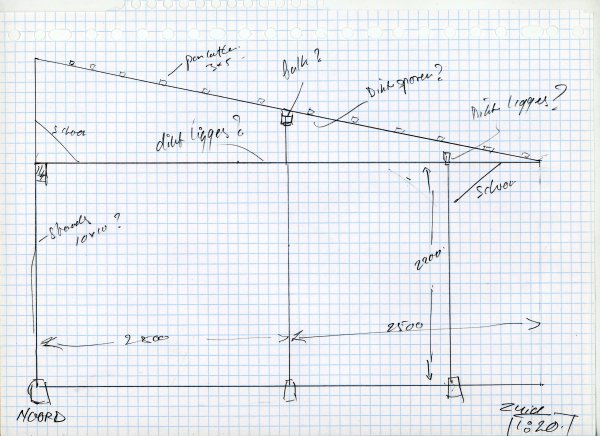 panlatten
3x5
balk?
Dikte sporen?
Dikte liggers?
dikte liggers?
schoor
schoor
staanders
10x10?
2200
2500
2500
NOORD
ZUID
1:20.